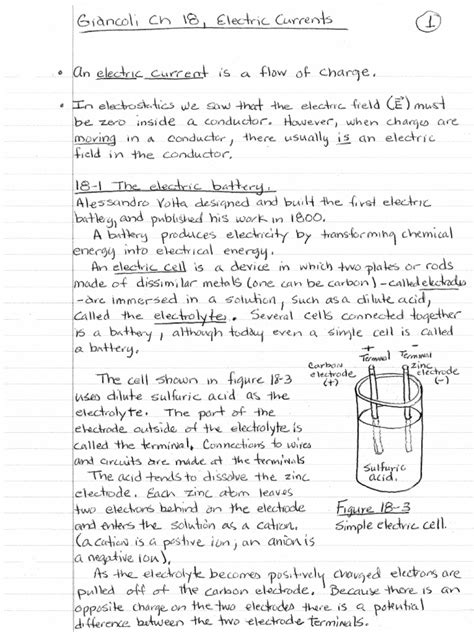 Giancoli Ch 18, Electric Currents
1
• An electric current is a flow of charge.
• In electrostatics we saw that the electric field (E⃗) must
be zero inside a conductor. However, when charges are
moving in a conductor, there usually is an electric
field in the conductor.
18-1 The electric battery.
Alessandro Volta designed and built the first electric
battery, and published his work in 1800.
A battery produces electricity by transforming chemical
energy into electrical energy.
An electric cell is a device in which two plates or rods
made of dissimilar metals (one can be carbon) - called electrodes
- are immersed in a solution, such as a dilute acid,
called the electrolyte. Several cells connected together
is a battery, although today even a single cell is called
a battery.
The cell shown in figure 18-3
uses dilute sulfuric acid as the
electrolyte. The part of the
electrode outside of the electrolyte is
called the terminal. Connections to wires
and circuits are made at the terminals
The acid tends to dissolve the zinc
electrode. Each zinc atom leaves
two electrons behind on the electrode
and enters the solution as a cation.
(a cation is a positive ion, an anion is
a negative ion).
+ Terminal
- Terminal
Carbon electrode (+)
zinc electrode (-)
Sulfuric
acid.
Figure 18-3
Simple electric cell.
As the electrolyte becomes positively charged electrons are
pulled off of the carbon electrode. Because there is an
opposite charge on the two electrodes there is a potential
difference between the two electrode terminals.